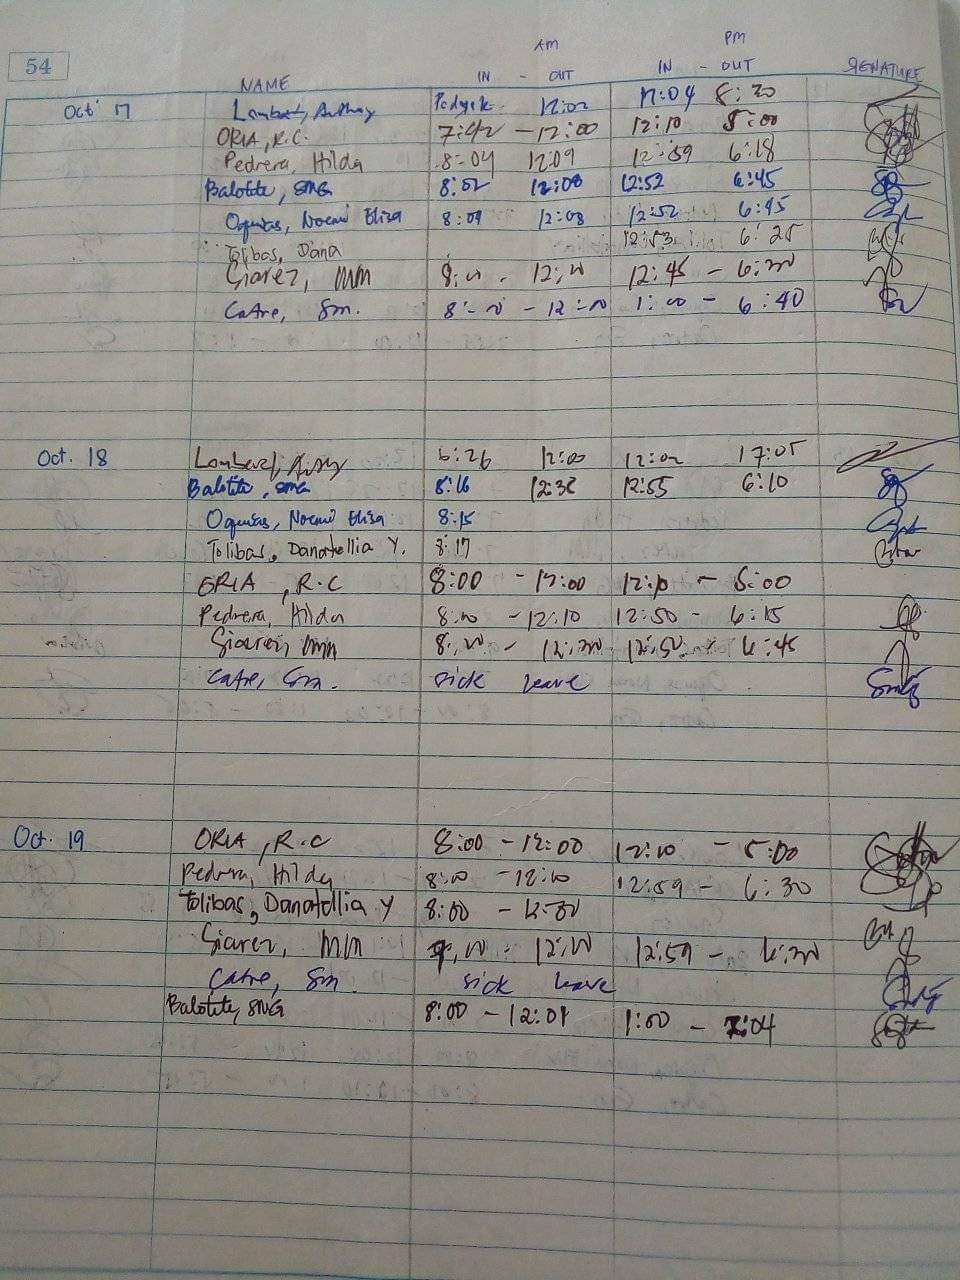 54
AM PM
NAME IN - OUT IN - OUT SIGNATURE
Oct 17 12:02 12:04 8:20
ORIA, R.C. 7:42 - 12:00 12:10 5:00
Pedrera, Hilda 8:04 12:09 12:59 6:18
Balotite, SMG 8:02 12:08 12:52 6:45
Oquias, Noemi Eliza 8:09 12:08 12:52 6:45
Tolibas, Dana 12:53 6:25
Giarez, MM 8:00 - 12:00 12:45 - 6:30
Catre, Sm. 8:00 - 12:00 1:00 - 6:40
Oct. 18 6:26 12:00 12:02 17:05
Balotite, SMG 8:16 12:32 12:55 6:10
Oquias, Noemi Eliza 8:15
Tolibas, Danatellia Y. 8:17
ORIA, R.C 8:00 - 12:00 12:10 - 5:00
Pedrera, Hilda 8:00 - 12:10 12:50 - 6:15
Giarez, MM 12:50 - 6:45
Catre, Sm. sick leave
Oct. 19 ORIA, R.C 8:00 - 12:00 12:10 - 5:00
Pedrera, Hilda 8:00 - 12:10 12:59 - 6:30
Tolibas, Danatellia Y 8:00 - 12:30
Giarez, MM 12:00 12:59 - 6:30
Catre, Sm. sick leave
Balotite, SMG 8:00 - 12:01 1:00 - 7:04